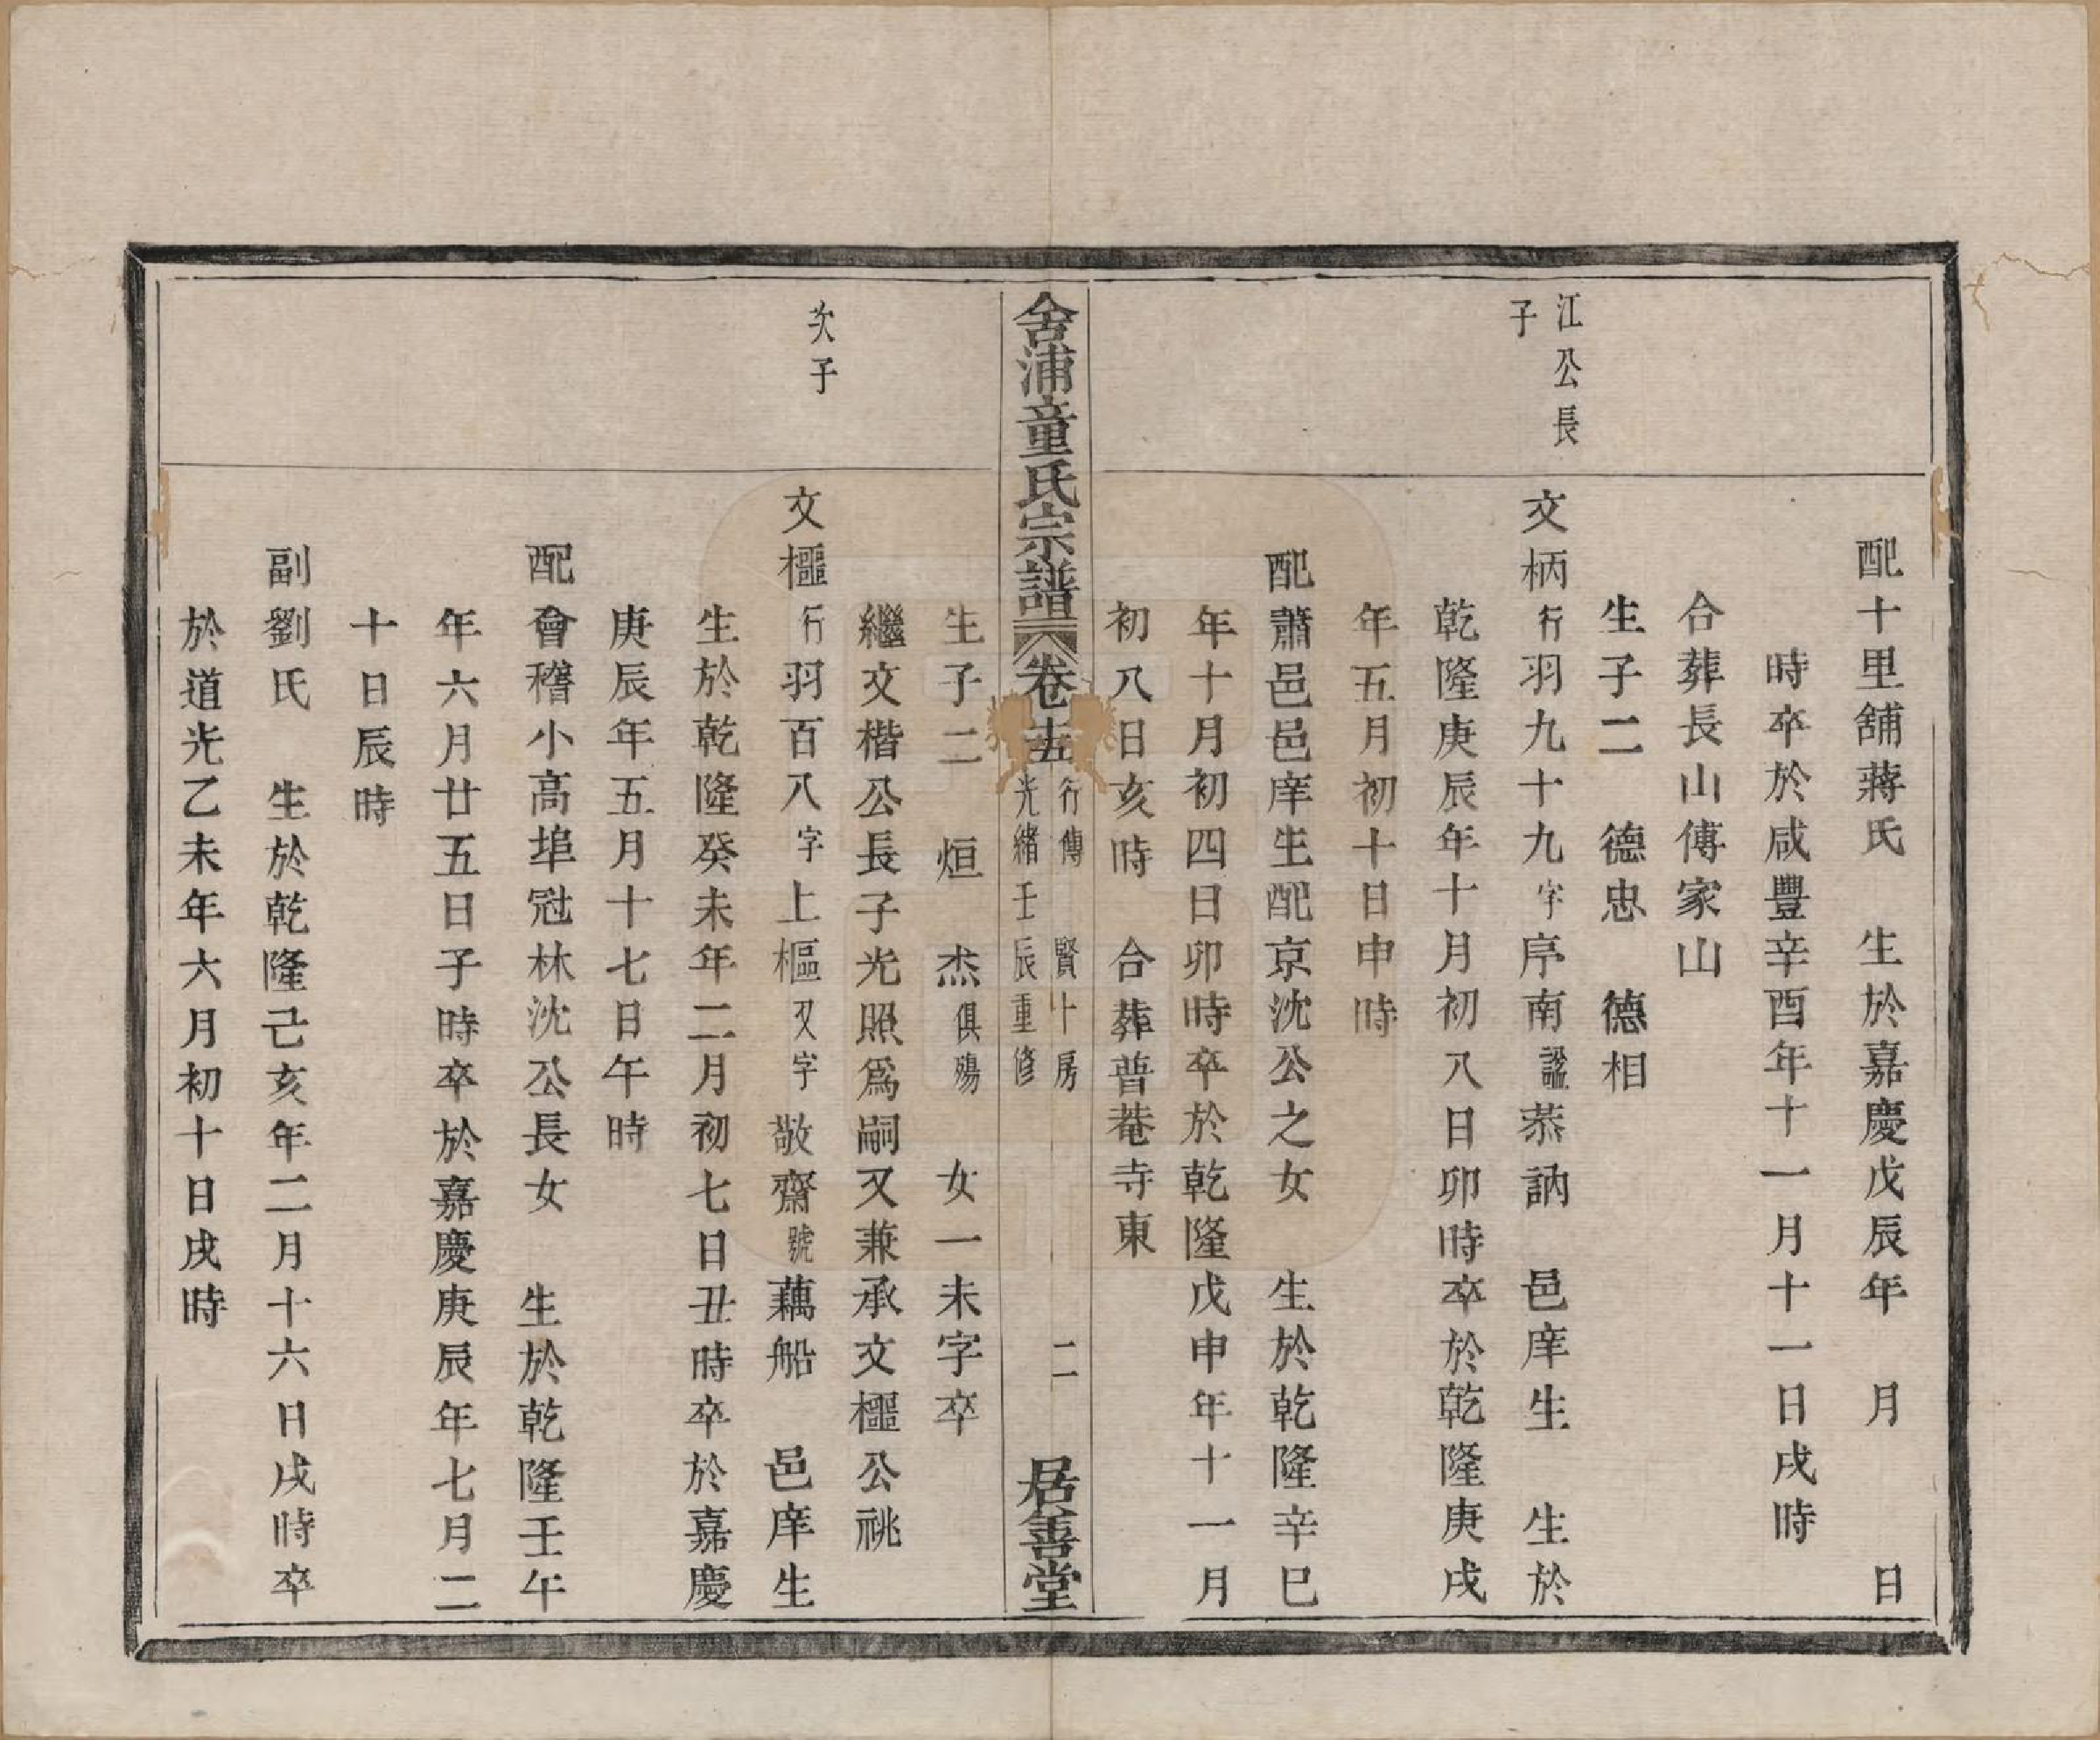 配十里舖蔣氏　生於嘉慶戊辰年　月　　日
時卒於咸豐辛酉年十一月十一日戌時
合葬長山傅家山
生子二　德忠　德相
江公長
子
文柄行羽九十九字序南諡恭訥　邑庠生　生於
乾隆庚辰年十月初八日卯時卒於乾隆庚戌
年五月初十日申時
配蕭邑邑庠生配京沈公之女　生於乾隆辛巳
年十月初四日卯時卒於乾隆戊申年十一月
初八日亥時　合葬普菴寺東
舍浦童氏宗譜　卷十五　行傳　賢十房　二　居善堂
光緒壬辰重修
生子二　烜　杰俱殤　女一未字卒
繼文楷公長子光照爲嗣又兼承文櫮公祧
次子
文櫮行羽百八字上樞又字敬齋號藕船　邑庠生
生於乾隆癸未年二月初七日丑時卒於嘉慶
庚辰年五月十七日午時
配會稽小高埠冠林沈公長女　生於乾隆壬午
年六月廿五日子時卒於嘉慶庚辰年七月二
十日辰時
副劉氏　生於乾隆己亥年二月十六日戌時卒
於道光乙未年六月初十日戌時